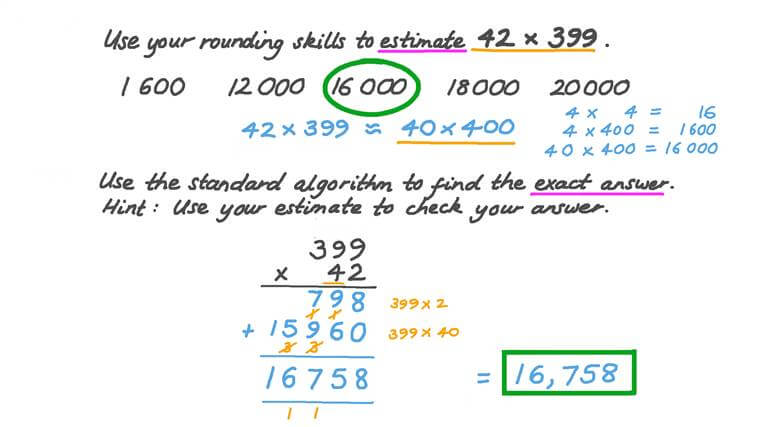 Use your rounding skills to estimate 42 × 399.
1 600 12 000 16 000 18 000 20 000
42 × 399 ≈ 40 × 400
4 × 4 = 16
4 × 400 = 1600
40 × 400 = 16 000
Use the standard algorithm to find the exact answer.
Hint: Use your estimate to check your answer.
399
× 42
798 399 × 2
1 1
+ 15960 399 × 40
3 3
16758 = 16,758
1 1